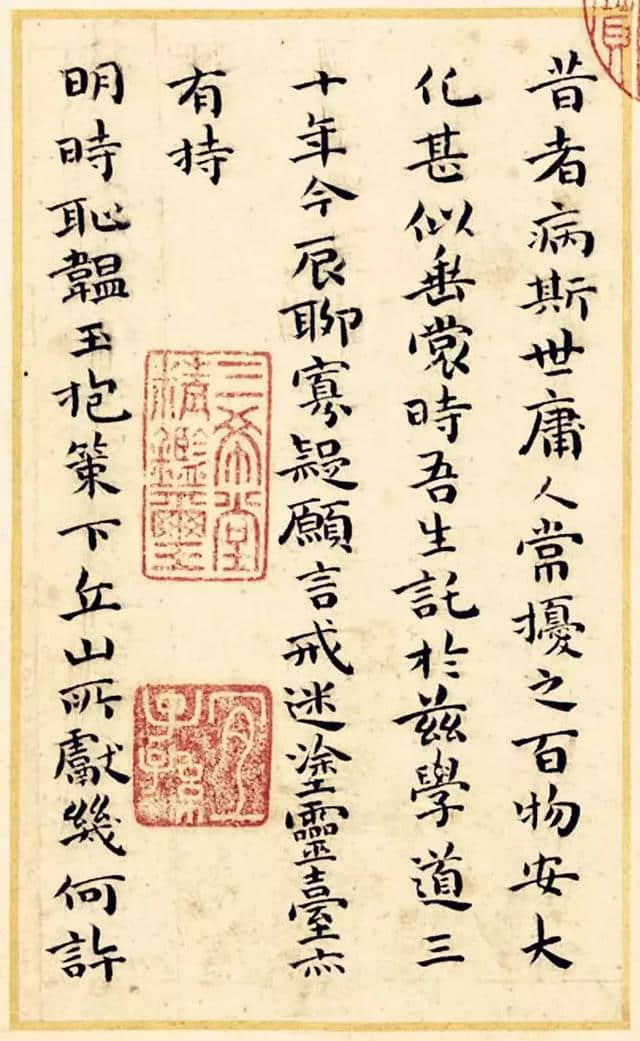 昔者病斯世庸人常擾之百物安大
化甚似垂裳時吾生託於茲學道三
十年今辰聊寡疑願言戒迷塗靈臺亦
有持
明時恥韞玉抱策下丘山所獻幾何許
三希堂
精鑑璽
宜
子孫